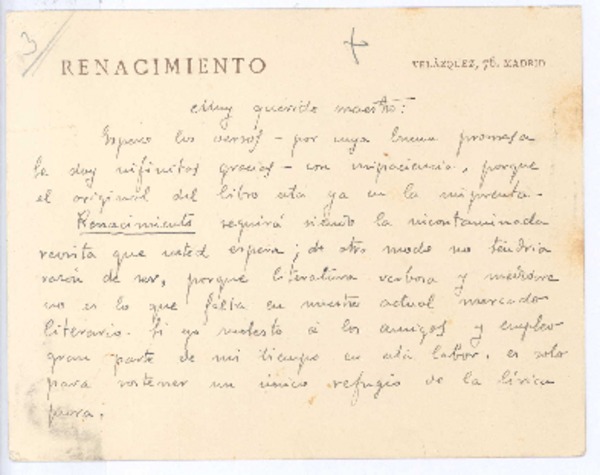 3
RENACIMIENTO
VELÁZQUEZ, 76. MADRID
Muy querido maestro:
Espero los versos - por cuya buena promesa
le doy infinitas gracias - con impaciencia, porque
el original del libro está ya en la imprenta.
Renacimiento seguirá siendo la incontaminada
revista que usted espera; de otro modo no tendría
razón de ser, porque literatura verbosa y mediocre
no es lo que falta en nuestro actual mercado
literario. Si yo molesto á los amigos y empleo
gran parte de mi tiempo en esta labor, es solo
para sostener un único refugio de la lírica
pura;